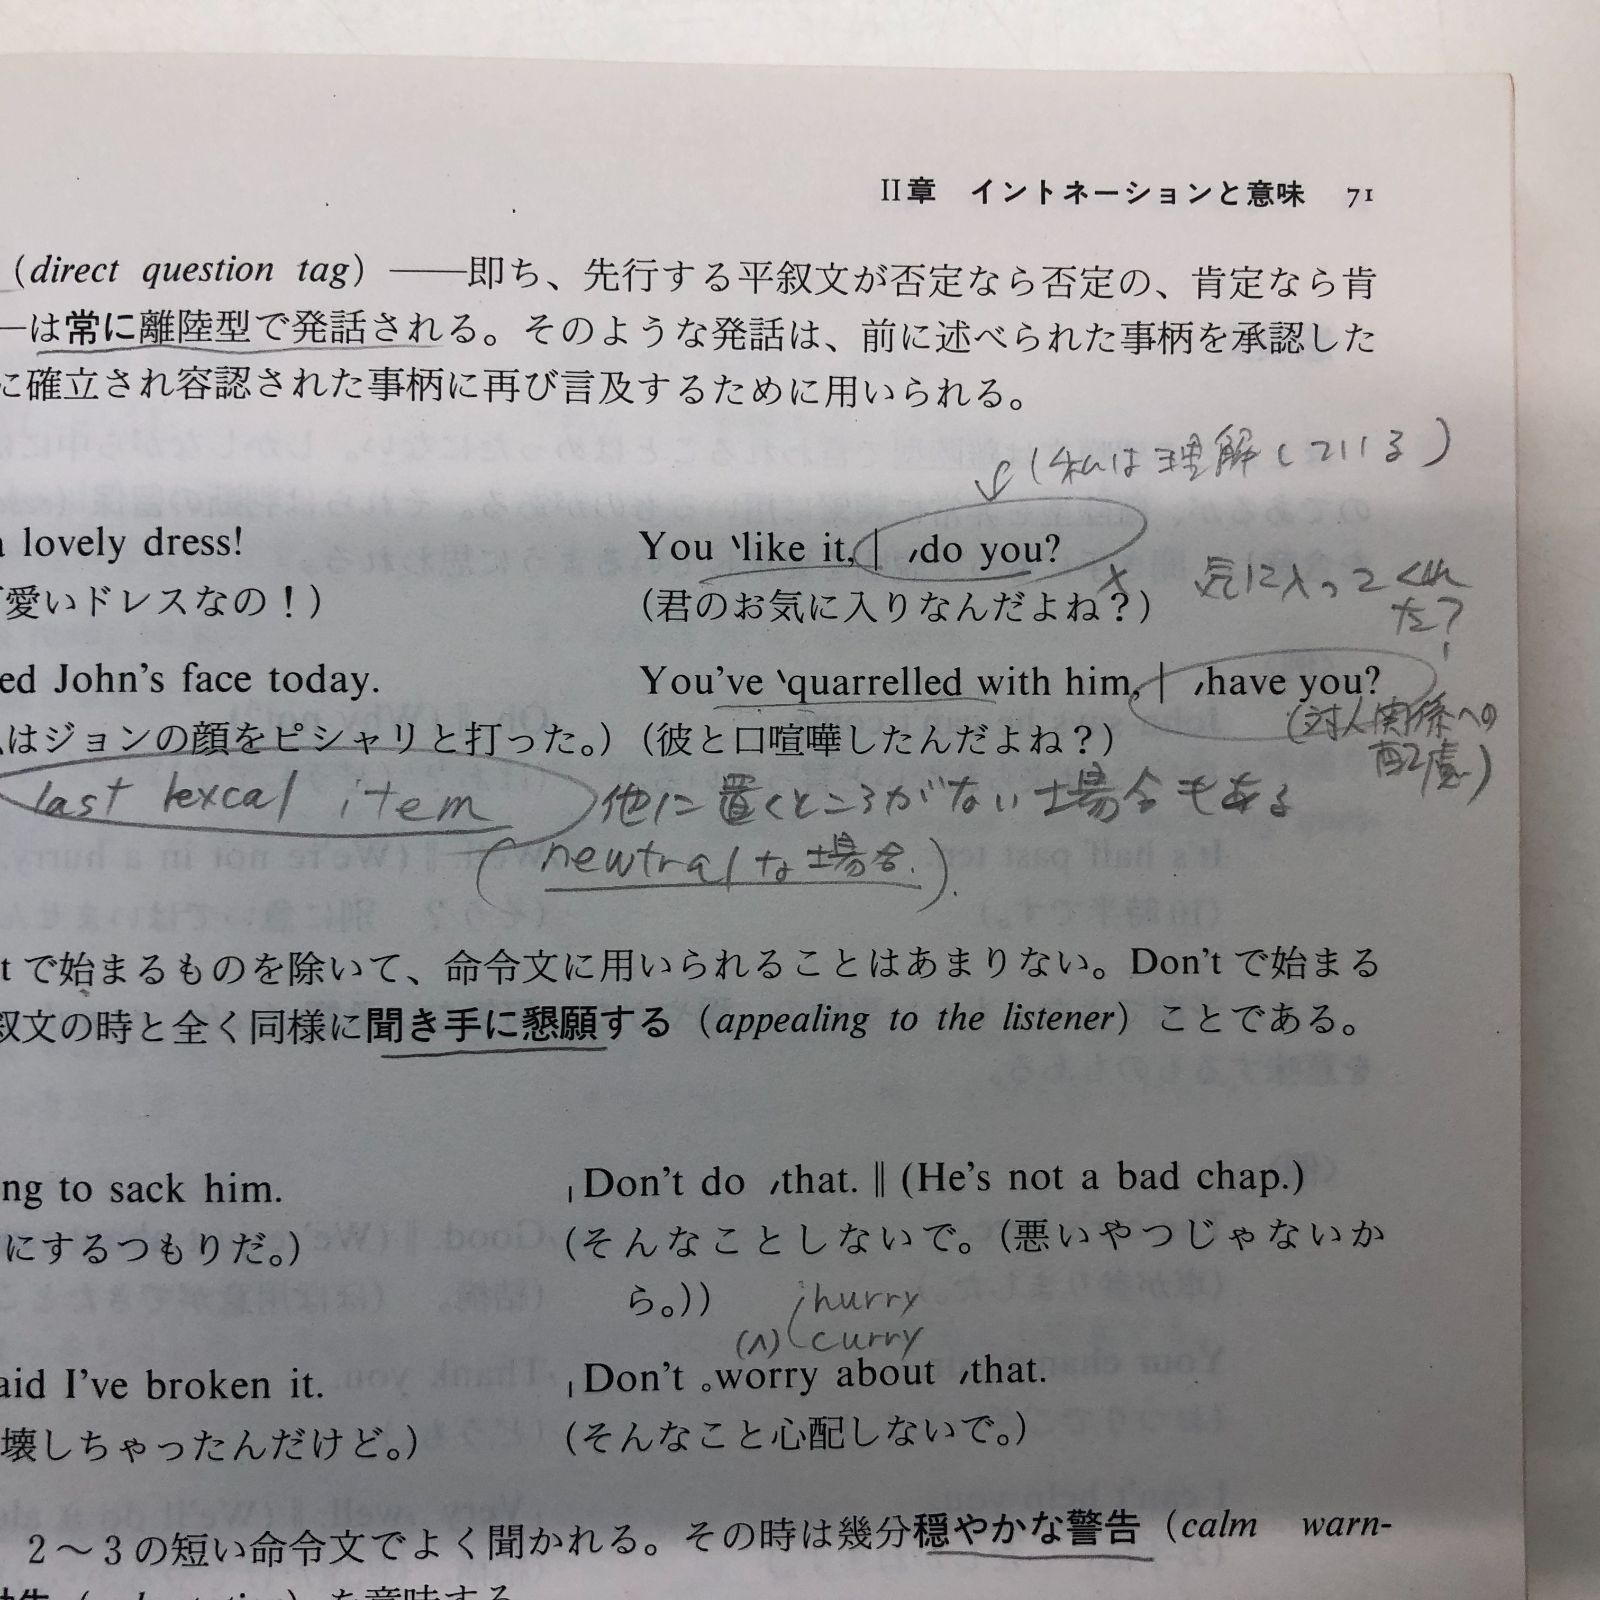 II章 イントネーションと意味 71
(direct question tag) ——即ち、先行する平叙文が否定なら否定の、肯定なら肯
—は常に離陸型で発話される。そのような発話は、前に述べられた事柄を承認した
に確立され容認された事柄に再び言及するために用いられる。
(私は理解している)
a lovely dress!
You ˋlike it, | ˏdo you?
愛いドレスなの！)
(君のお気に入りなんだよね？)
気に入ってくれ
た？
ed John's face today.
You've ˋquarrelled with him, | ˏhave you?
はジョンの顔をピシャリと打った。)
(彼と口喧嘩したんだよね？)
(対人関係への
配慮)
last lexcal item 他に置くところがない場合もある
(newtralな場合.).
tで始まるものを除いて、命令文に用いられることはあまりない。Don'tで始まる
叙文の時と全く同様に聞き手に懇願する (appealing to the listener) ことである。
ng to sack him.
ˌDon't do ˏthat. ‖ (He's not a bad chap.)
にするつもりだ。)
(そんなことしないで。(悪いやつじゃないか
ら。))
hurry
(ʌ) curry
aid I've broken it.
ˌDon't ˳worry about ˏthat.
壊しちゃったんだけど。)
(そんなこと心配しないで。)
2～3の短い命令文でよく聞かれる。その時は幾分穏やかな警告 (calm warn-
を意味する